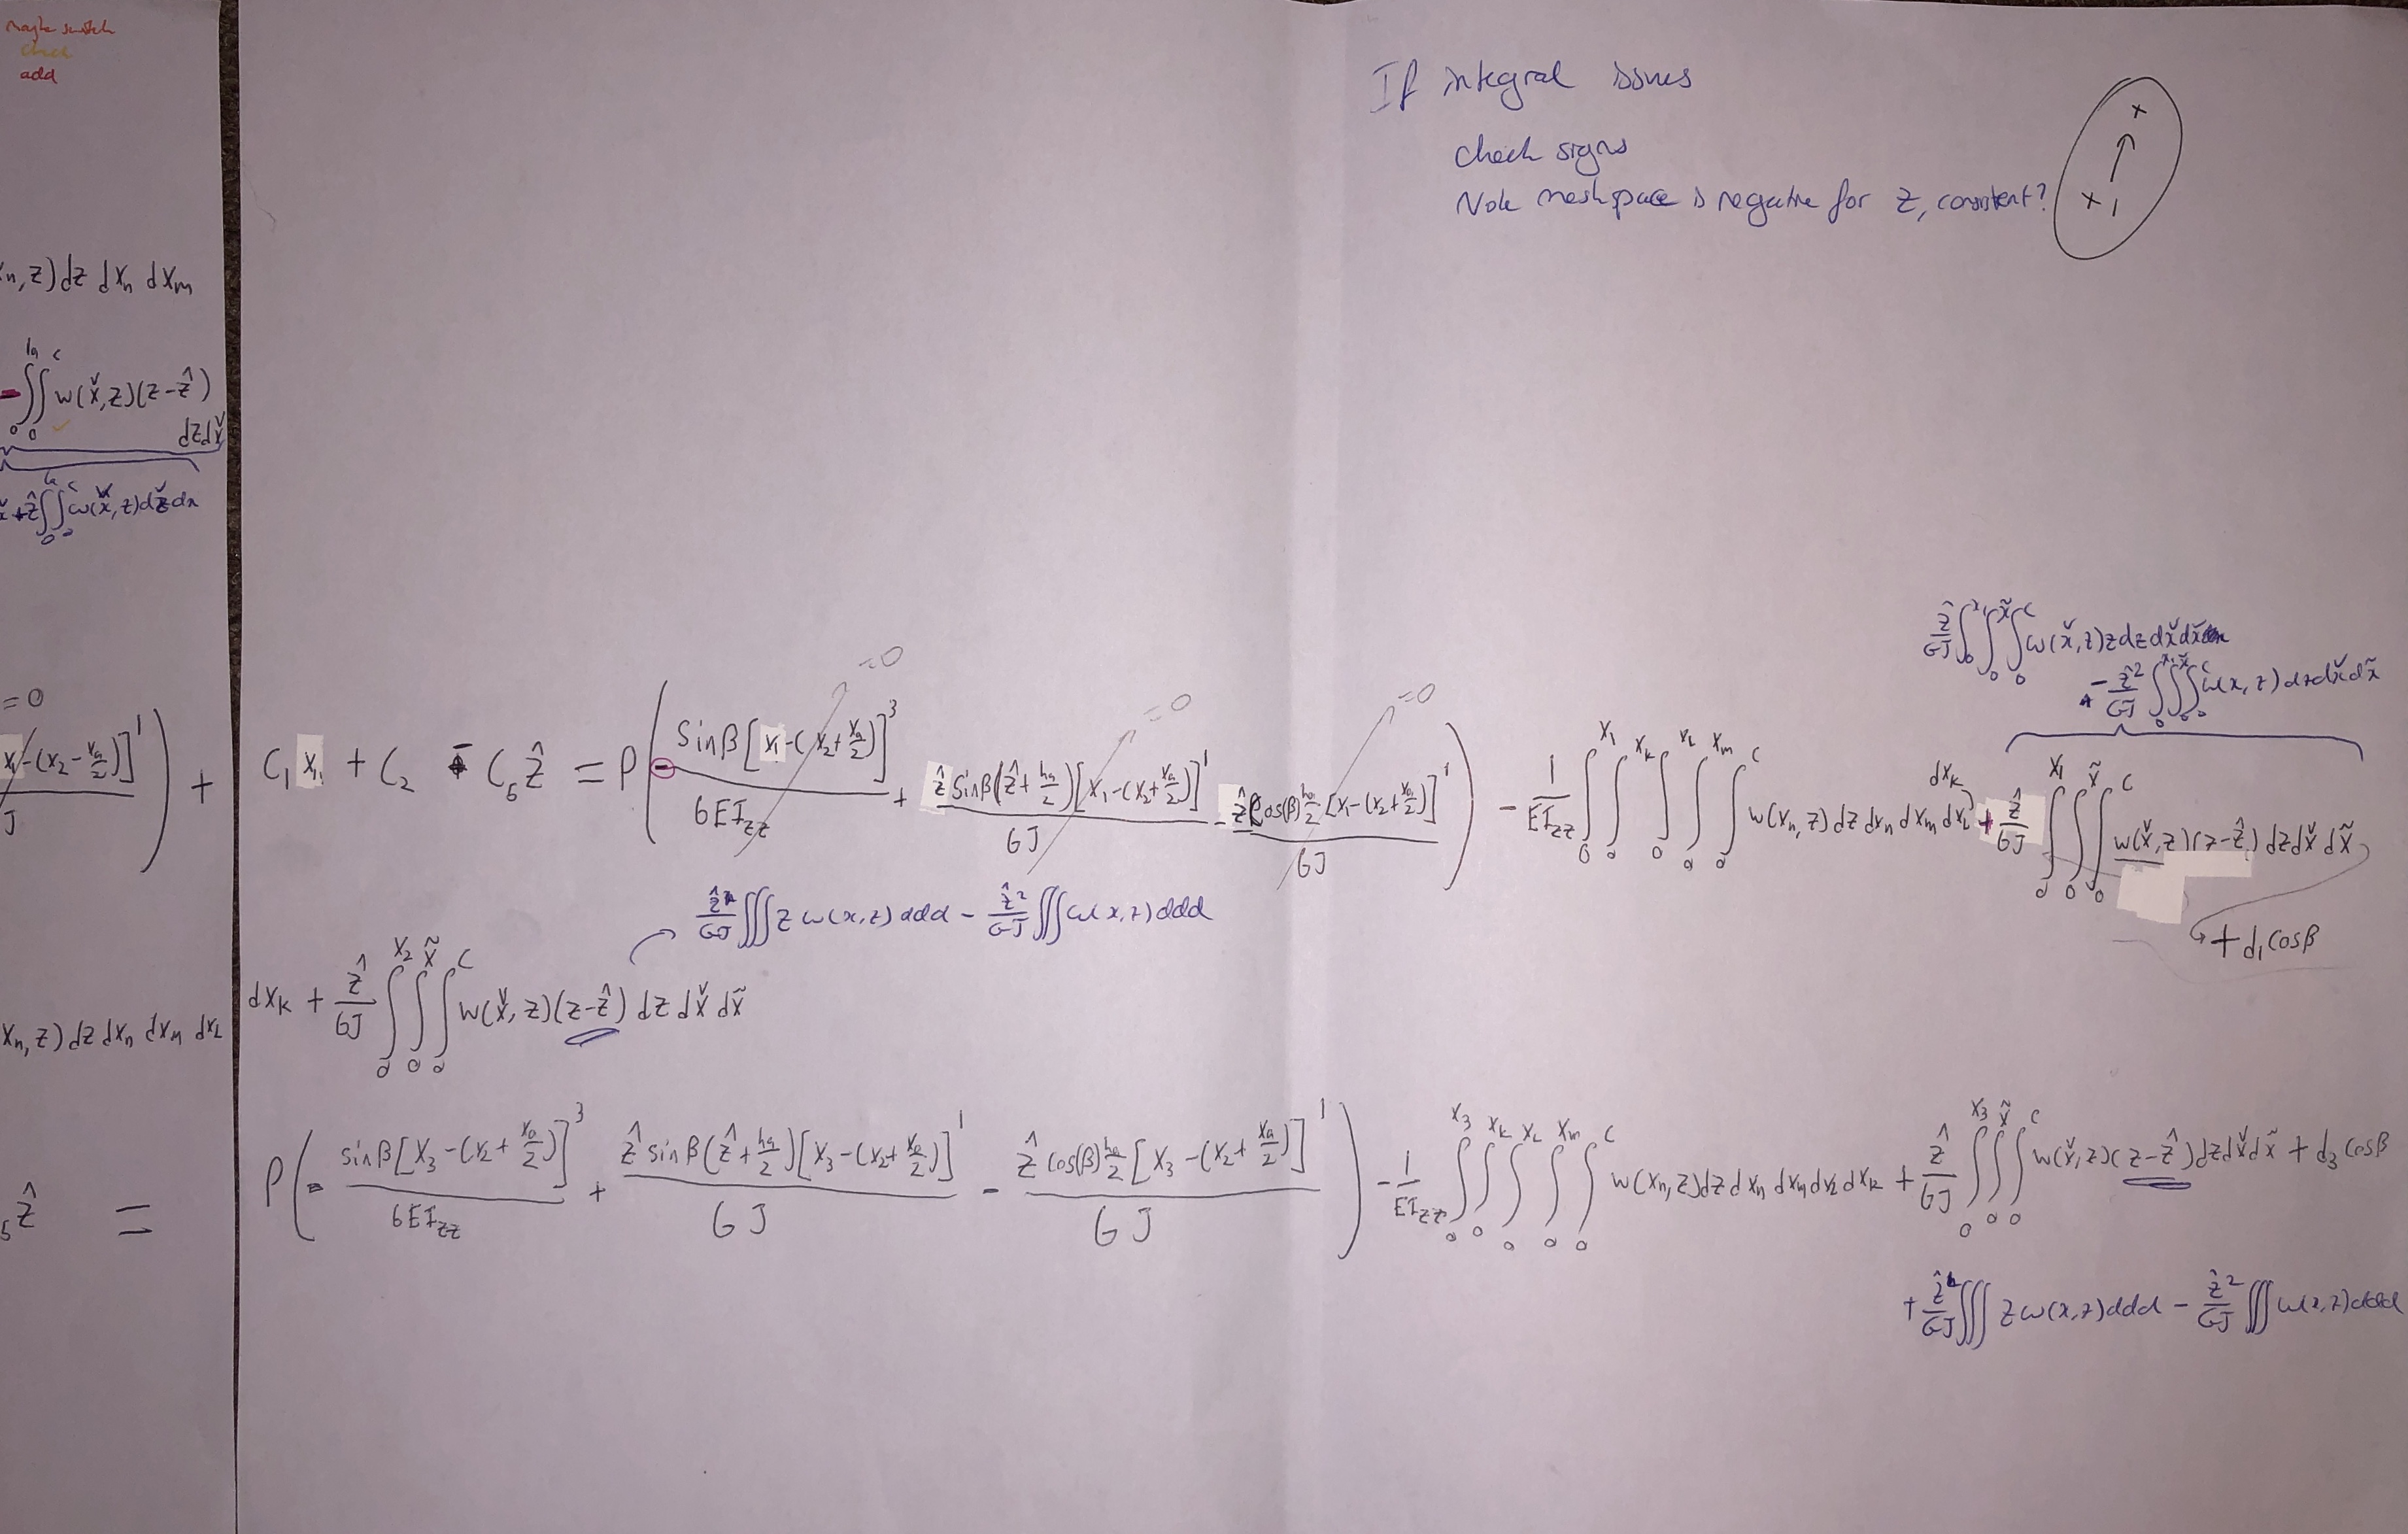 maybe switch
check
add
If integral issues
check signs
Note meshspace is negative for z, consistent?
x
↑
x 1
xₙ, z) dz dxₙ dxₘ
- ∫₀^{la} ∫₀^c w(x̌, z)(z - ẑ) dz dx̌
+ ẑ ∫₀^{la} ∫₀^c w(x̌, z) dz dx
ẑ/GJ ∫₀^{x₁} ∫₀^{x̃} ∫₀^c w(x̌, z) z dz dx̌ dx̃
- ẑ²/GJ ∫₀^{x₁} ∫₀^{x̃} ∫₀^c w(x, z) dz dx̌ dx̃
= 0
= 0
= 0
= 0
x₁ - (x₂ - xₐ/2)]¹ / J ) + C₁ x₁ + C₂ - C₅ ẑ = P ( - sin β [x₁ - (x₂ + xₐ/2)]³ / 6EI_zz + ẑ sin β (ẑ + hₐ/2) [x₁ - (x₂ + xₐ/2)]¹ / GJ - ẑ cos(β) hₐ/2 [x₁ - (x₂ + xₐ/2)]¹ / GJ ) - 1/EI_zz ∫₀^{x₁} ∫₀^{x_k} ∫₀^{x_L} ∫₀^{xₘ} ∫₀^c w(xₙ, z) dz dxₙ dxₘ dx_L dx_k + ẑ/GJ ∫₀^{x₁} ∫₀^{x̃} ∫₀^c w(x̌, z)(z - ẑ) dz dx̌ dx̃
+ d₁ cos β
ẑ/GJ ∭ z w(x, z) ddd - ẑ²/GJ ∭ w(x, z) ddd
xₙ, z) dz dxₙ dxₘ dx_L dx_k + ẑ/GJ ∫₀^{x₂} ∫₀^{x̃} ∫₀^c w(x̌, z)(z - ẑ) dz dx̌ dx̃
₅ ẑ = P ( - sin β [x₃ - (x₂ + xₐ/2)]³ / 6EI_zz + ẑ sin β (ẑ + hₐ/2) [x₃ - (x₂ + xₐ/2)]¹ / GJ - ẑ cos(β) hₐ/2 [x₃ - (x₂ + xₐ/2)]¹ / GJ ) - 1/EI_zz ∫₀^{x₃} ∫₀^{x_k} ∫₀^{x_L} ∫₀^{xₘ} ∫₀^c w(xₙ, z) dz dxₙ dxₘ dx_L dx_k + ẑ/GJ ∫₀^{x₃} ∫₀^{x̃} ∫₀^c w(x̌, z)(z - ẑ) dz dx̌ dx̃ + d₃ cos β
+ ẑ/GJ ∭ z w(x, z) ddd - ẑ²/GJ ∭ w(x, z) ddd